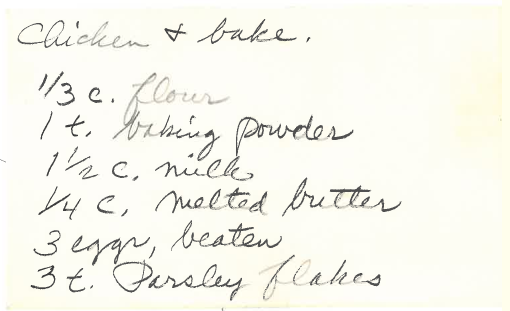 Chicken & bake.
1/3 c. flour
1 t. baking powder
1 1/2 c. milk
1/4 c. melted butter
3 eggs, beaten
3 t. Parsley flakes